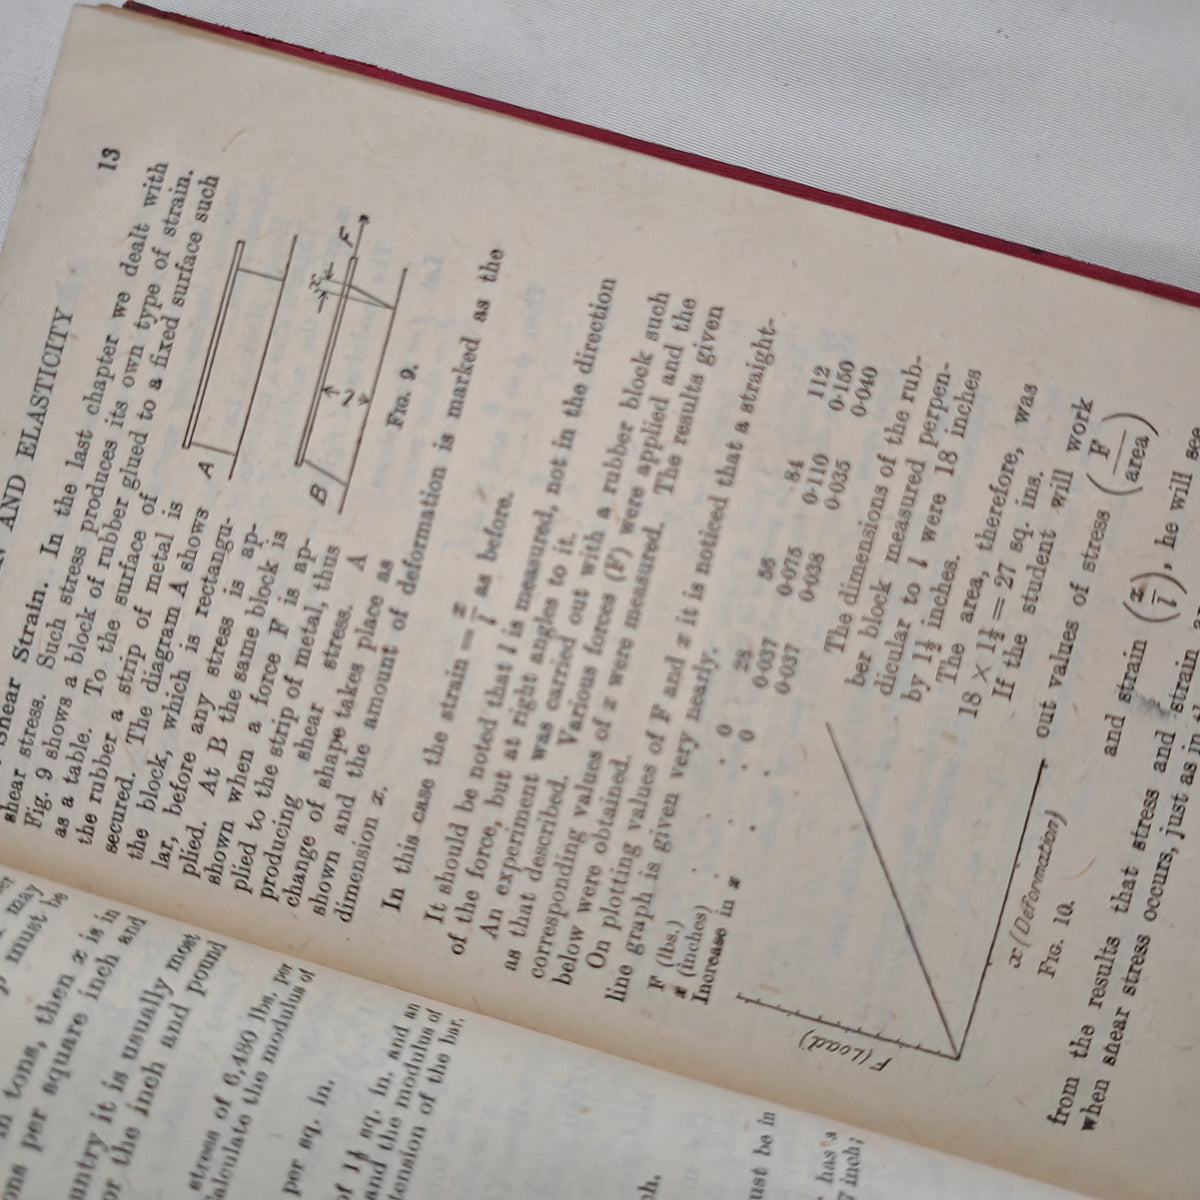 may
must be
tons, then x is in
per square inch and
untry it is usually most
or the inch and pound
stress of 6,480 lbs. per
alculate the modulus of
per sq. in.
sq. in. and an
and the modulus of
tension of the bar.
ust be in
has a
7 inch;
AND ELASTICITY 13
Shear Strain. In the last chapter we dealt with
shear stress. Such stress produces its own type of strain.
Fig. 9 shows a block of rubber glued to a fixed surface such
as a table. To the surface of
the rubber a strip of metal is
secured. The diagram A shows
the block, which is rectangu-
lar, before any stress is ap-
plied. At B the same block is
shown when a force F is ap-
plied to the strip of metal, thus
producing shear stress. A
change of shape takes place as
shown and the amount of deformation is marked as the
dimension x.
A
B
x
F
FIG. 9.
In this case the strain = x/l as before.
It should be noted that l is measured, not in the direction
of the force, but at right angles to it.
An experiment was carried out with a rubber block such
as that described. Various forces (F) were applied and the
corresponding values of x were measured. The results given
below were obtained.
On plotting values of F and x it is noticed that a straight-
line graph is given very nearly.
F (lbs.) . . 0 28 56 84 112
x (inches) . . 0 0·037 0·075 0·110 0·150
Increase in x . 0·037 0·038 0·035 0·040
F (Load)
x (Deformation)
FIG. 10.
The dimensions of the rub-
ber block measured perpen-
dicular to l were 18 inches
by 1½ inches.
The area, therefore, was
18 × 1½ = 27 sq. ins.
If the student will work
out values of stress (F/area)
and strain (x/l), he will see
from the results that stress and strain
when shear stress occurs, just as in